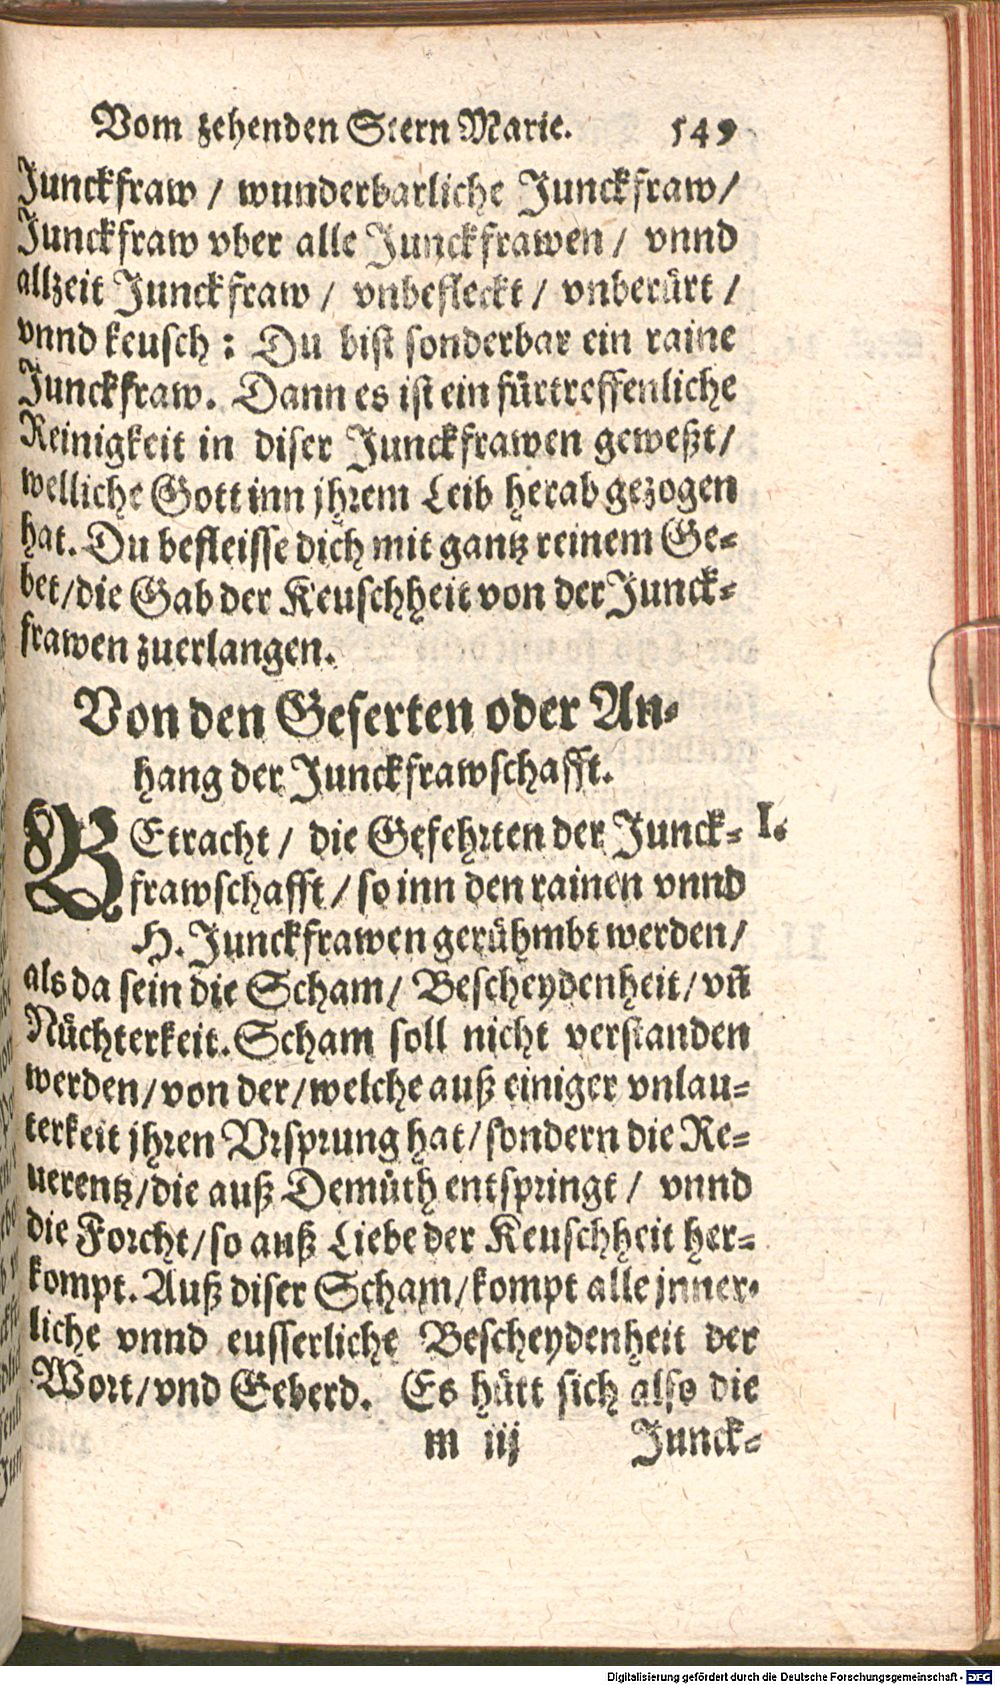 Vom zehenden Stern Marie. 549
Junckfraw / wunderbarliche Junckfraw/
Junckfraw vber alle Junckfrawen / vnnd
allzeit Junckfraw / vnbefleckt / vnberürt /
vnnd keusch : Du bist sonderbar ein raine
Junckfraw. Dann es ist ein fürtreffenliche
Reinigkeit in diser Junckfrawen geweßt/
welliche Gott inn jhrem Leib herab gezogen
hat. Du befleisse dich mit gantz reinem Ge-
bet/die Gab der Keuschheit von der Junck-
frawen zuerlangen.
Von den Geferten oder An-
hang der Junckfrawschafft.
BEtracht / die Gefehrten der Junck- I.
frawschafft / so inn den rainen vnnd
H. Junckfrawen gerühmbt werden/
als da sein die Scham/ Bescheydenheit/ vñ
Nüchterkeit. Scham soll nicht verstanden
werden/von der/welche auß einiger vnlau-
terkeit jhren Vrsprung hat/sondern die Re-
uerentz/die auß Demüth entspringt / vnnd
die Forcht/so auß Liebe der Keuschheit her-
kompt. Auß diser Scham/kompt alle jnner-
liche vnnd eusserliche Bescheydenheit der
Wort/vnd Geberd. Es hütt sich also die
m iij Junck-
Digitalisierung gefördert durch die Deutsche Forschungsgemeinschaft - DFG